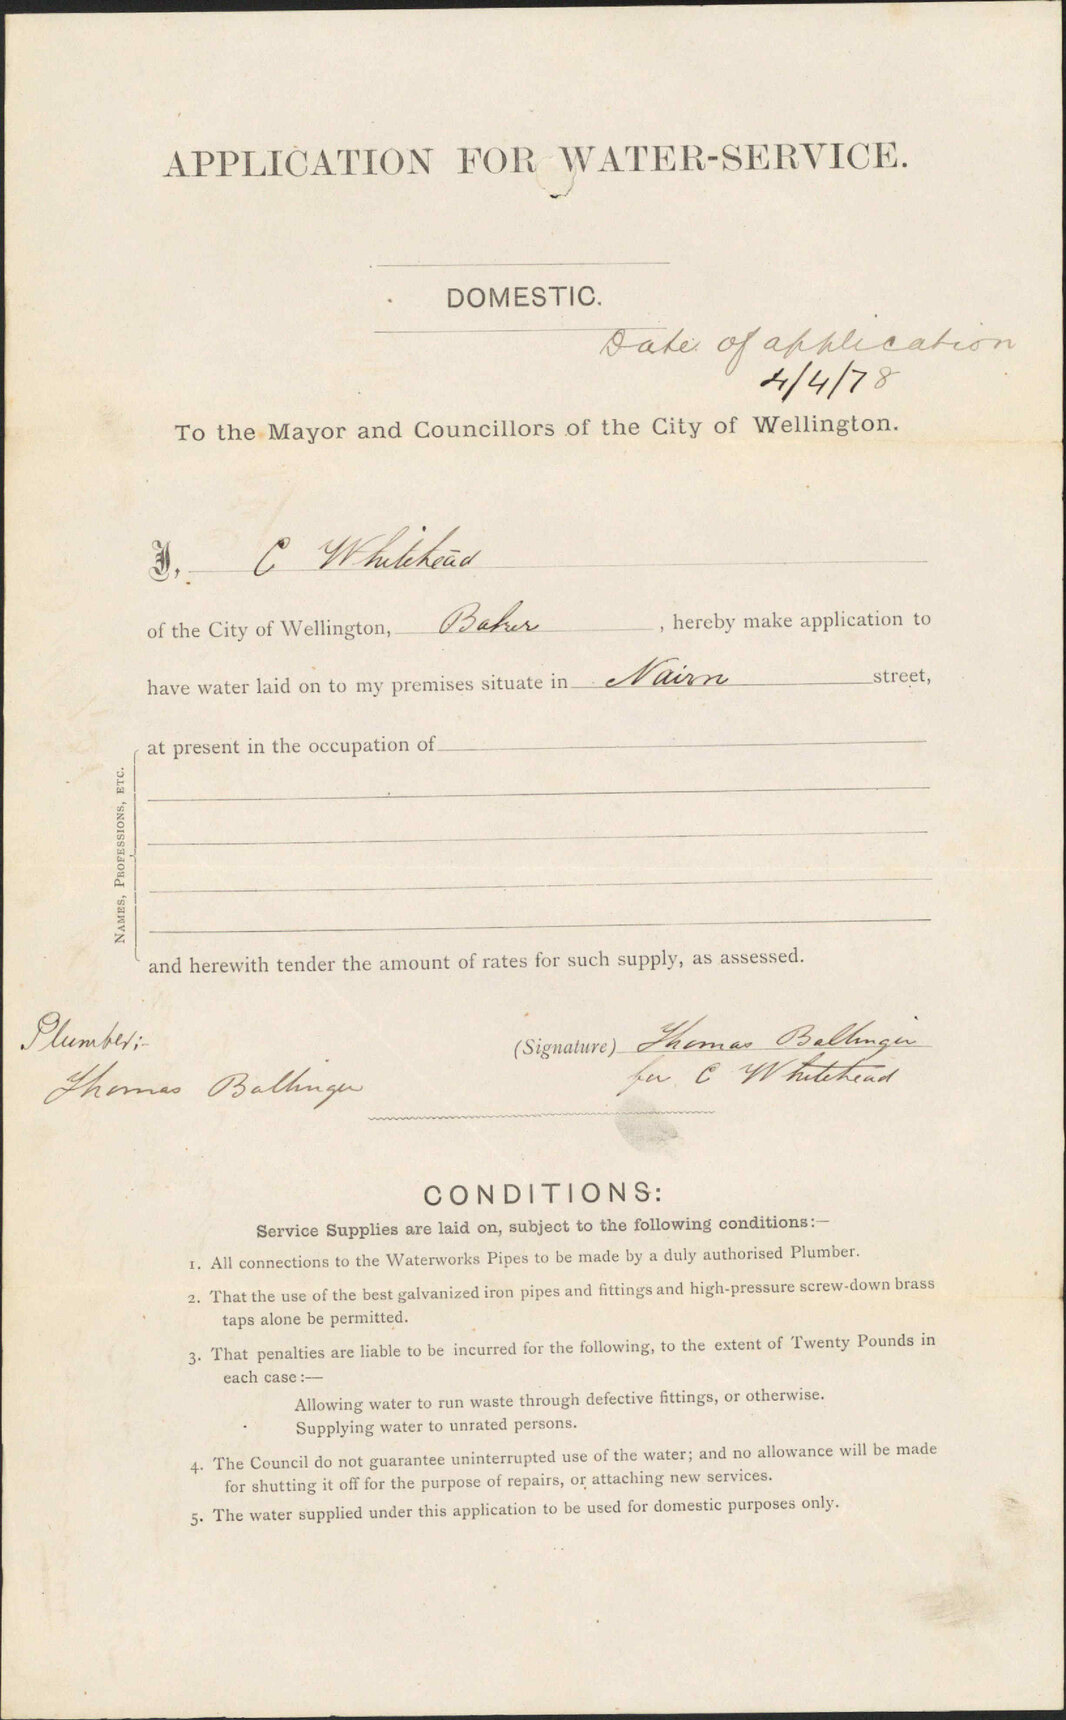 APPLICATION FOR WATER-SERVICE.
DOMESTIC.
Date of application
4/4/78
To the Mayor and Councillors of the City of Wellington.
I, C Whitehead
of the City of Wellington, Baker, hereby make application to
have water laid on to my premises situate in Nairn street,
at present in the occupation of
NAMES, PROFESSIONS, ETC.
and herewith tender the amount of rates for such supply, as assessed.
Plumber:-
Thomas Ballinger
(Signature) Thomas Ballinger
for C Whitehead
CONDITIONS:
Service Supplies are laid on, subject to the following conditions:—
1. All connections to the Waterworks Pipes to be made by a duly authorised Plumber.
2. That the use of the best galvanized iron pipes and fittings and high-pressure screw-down brass
taps alone be permitted.
3. That penalties are liable to be incurred for the following, to the extent of Twenty Pounds in
each case:—
Allowing water to run waste through defective fittings, or otherwise.
Supplying water to unrated persons.
4. The Council do not guarantee uninterrupted use of the water; and no allowance will be made
for shutting it off for the purpose of repairs, or attaching new services.
5. The water supplied under this application to be used for domestic purposes only.